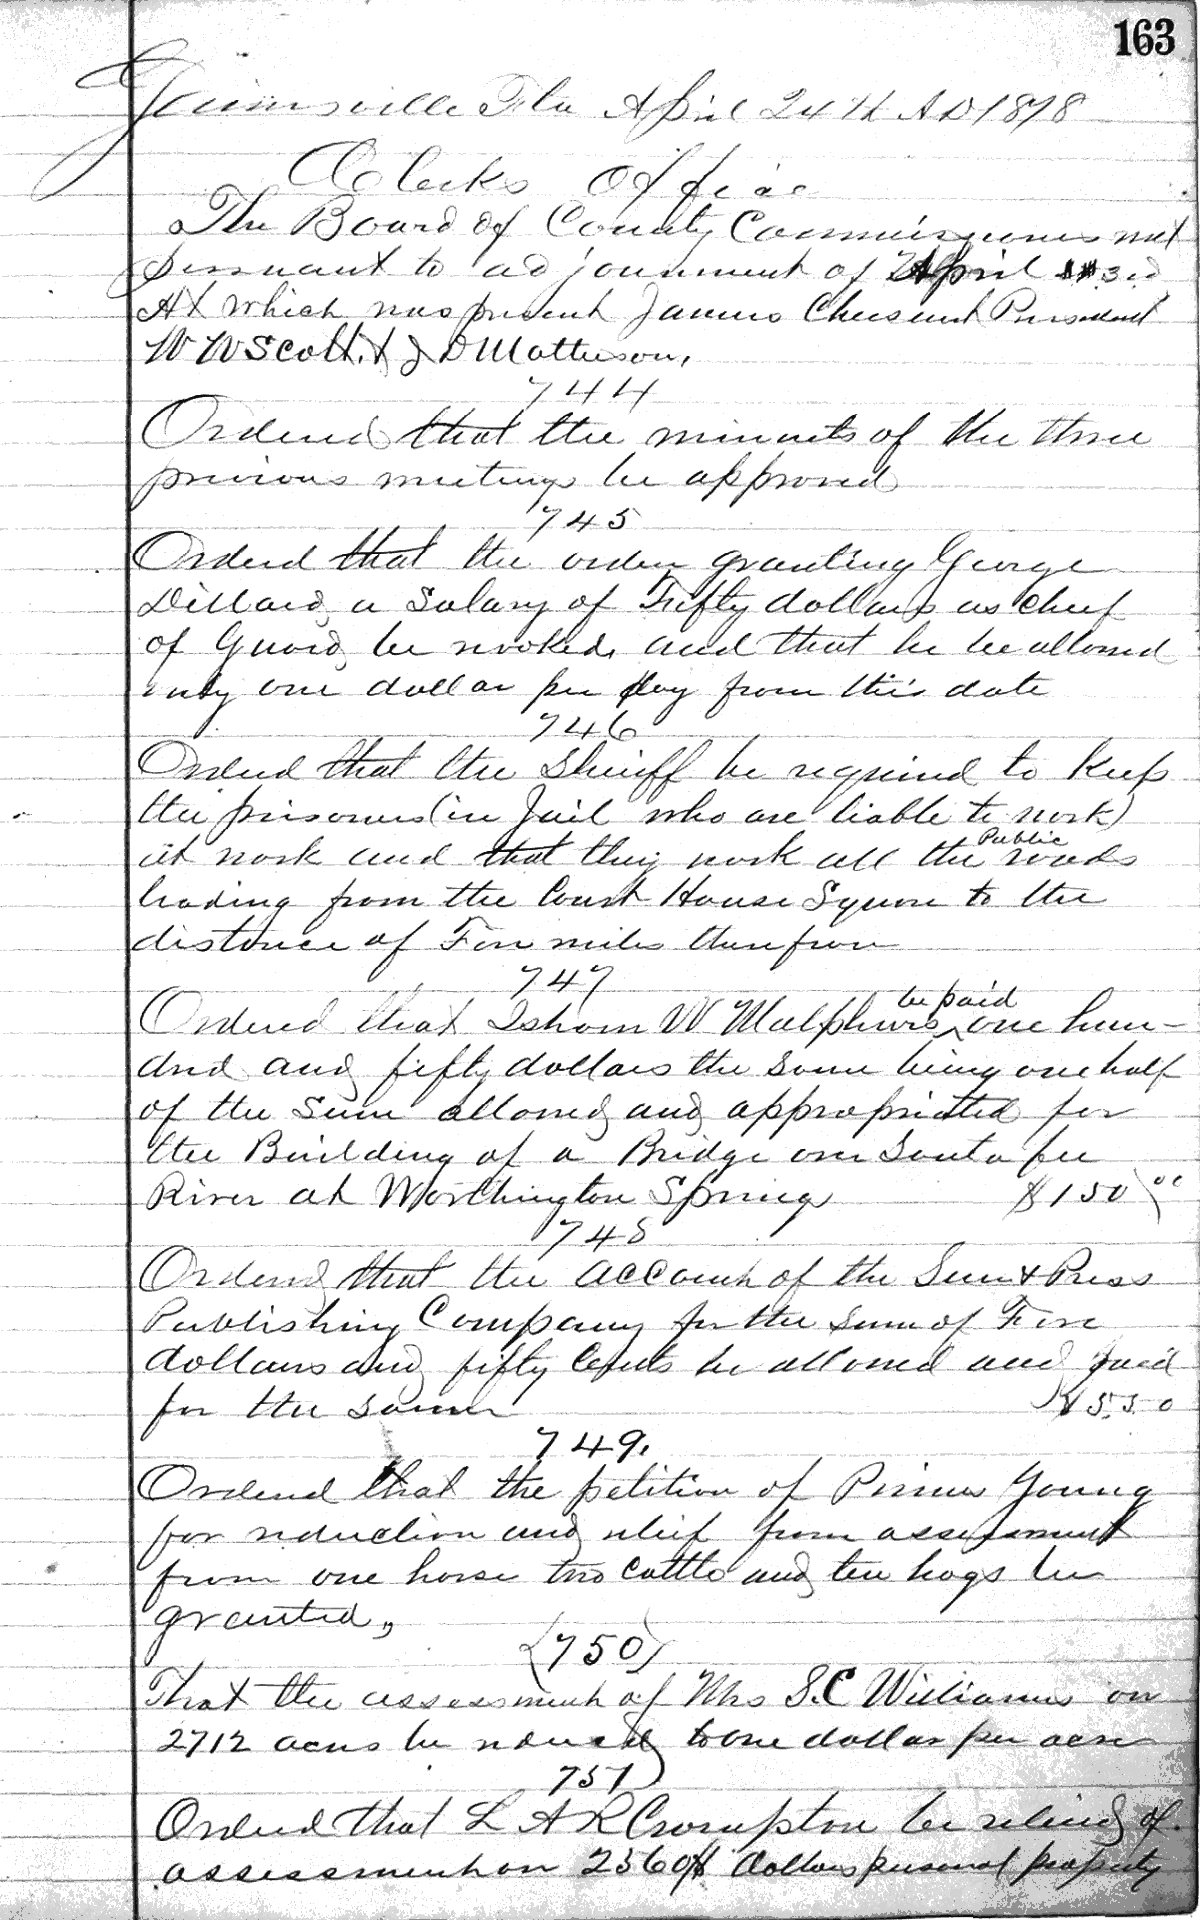 163
Gainesville Fla April 24th A D 1878
Clerks Office
The Board of County Commissioners met
pursuant to adjournment of April 3rd
At which was present James Chesnut President
W W Scott & J D Matheson,
744
Ordered that the minuets of the three
previous meetings be approved
745
Ordered that the order granting George
Dillard a Salary of Fifty dollars as chief
of Guard, be revoked, and that he be allowed
only one dollar per day from this date
746
Ordered that the Sheriff be required to keep
the prisoners (in Jail who are liable to work)
at work and that they work all the Public roads
leading from the Court House Square to the
distance of Five miles therefrom
747
Ordered that Isham W Malphurs be paid one hun-
dred and fifty dollars the same being one half
of the sum allowed and appropriated for
the Building of a Bridge over Santa fee
River at Worthington Springs $150 00
748
Ordered that the account of the Sun & Press
Publishing Company for the sum of Five
dollars and fifty cents be allowed and paid
for the same $5.50
749.
Ordered that the petition of Primus Young
for reduction and relief from assessment
from one horse two cattle and ten hogs be
granted,
(750)
That the assessment of Mrs S. C Williams on
2712 acres be reduced to one dollar per acre
751
Ordered that L A R Crompton be relieved of
assessment on dollars personal property